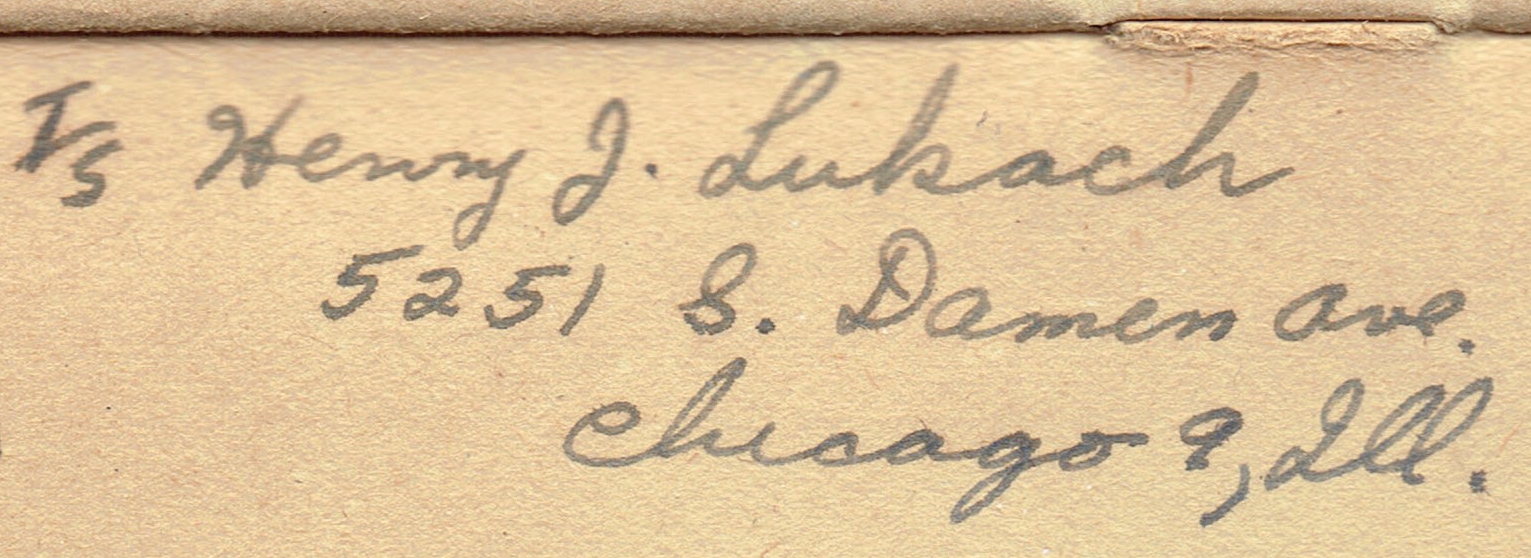 T/S Henry J. Lukach
5251 S. Damen Ave.
Chicago 9, Ill.